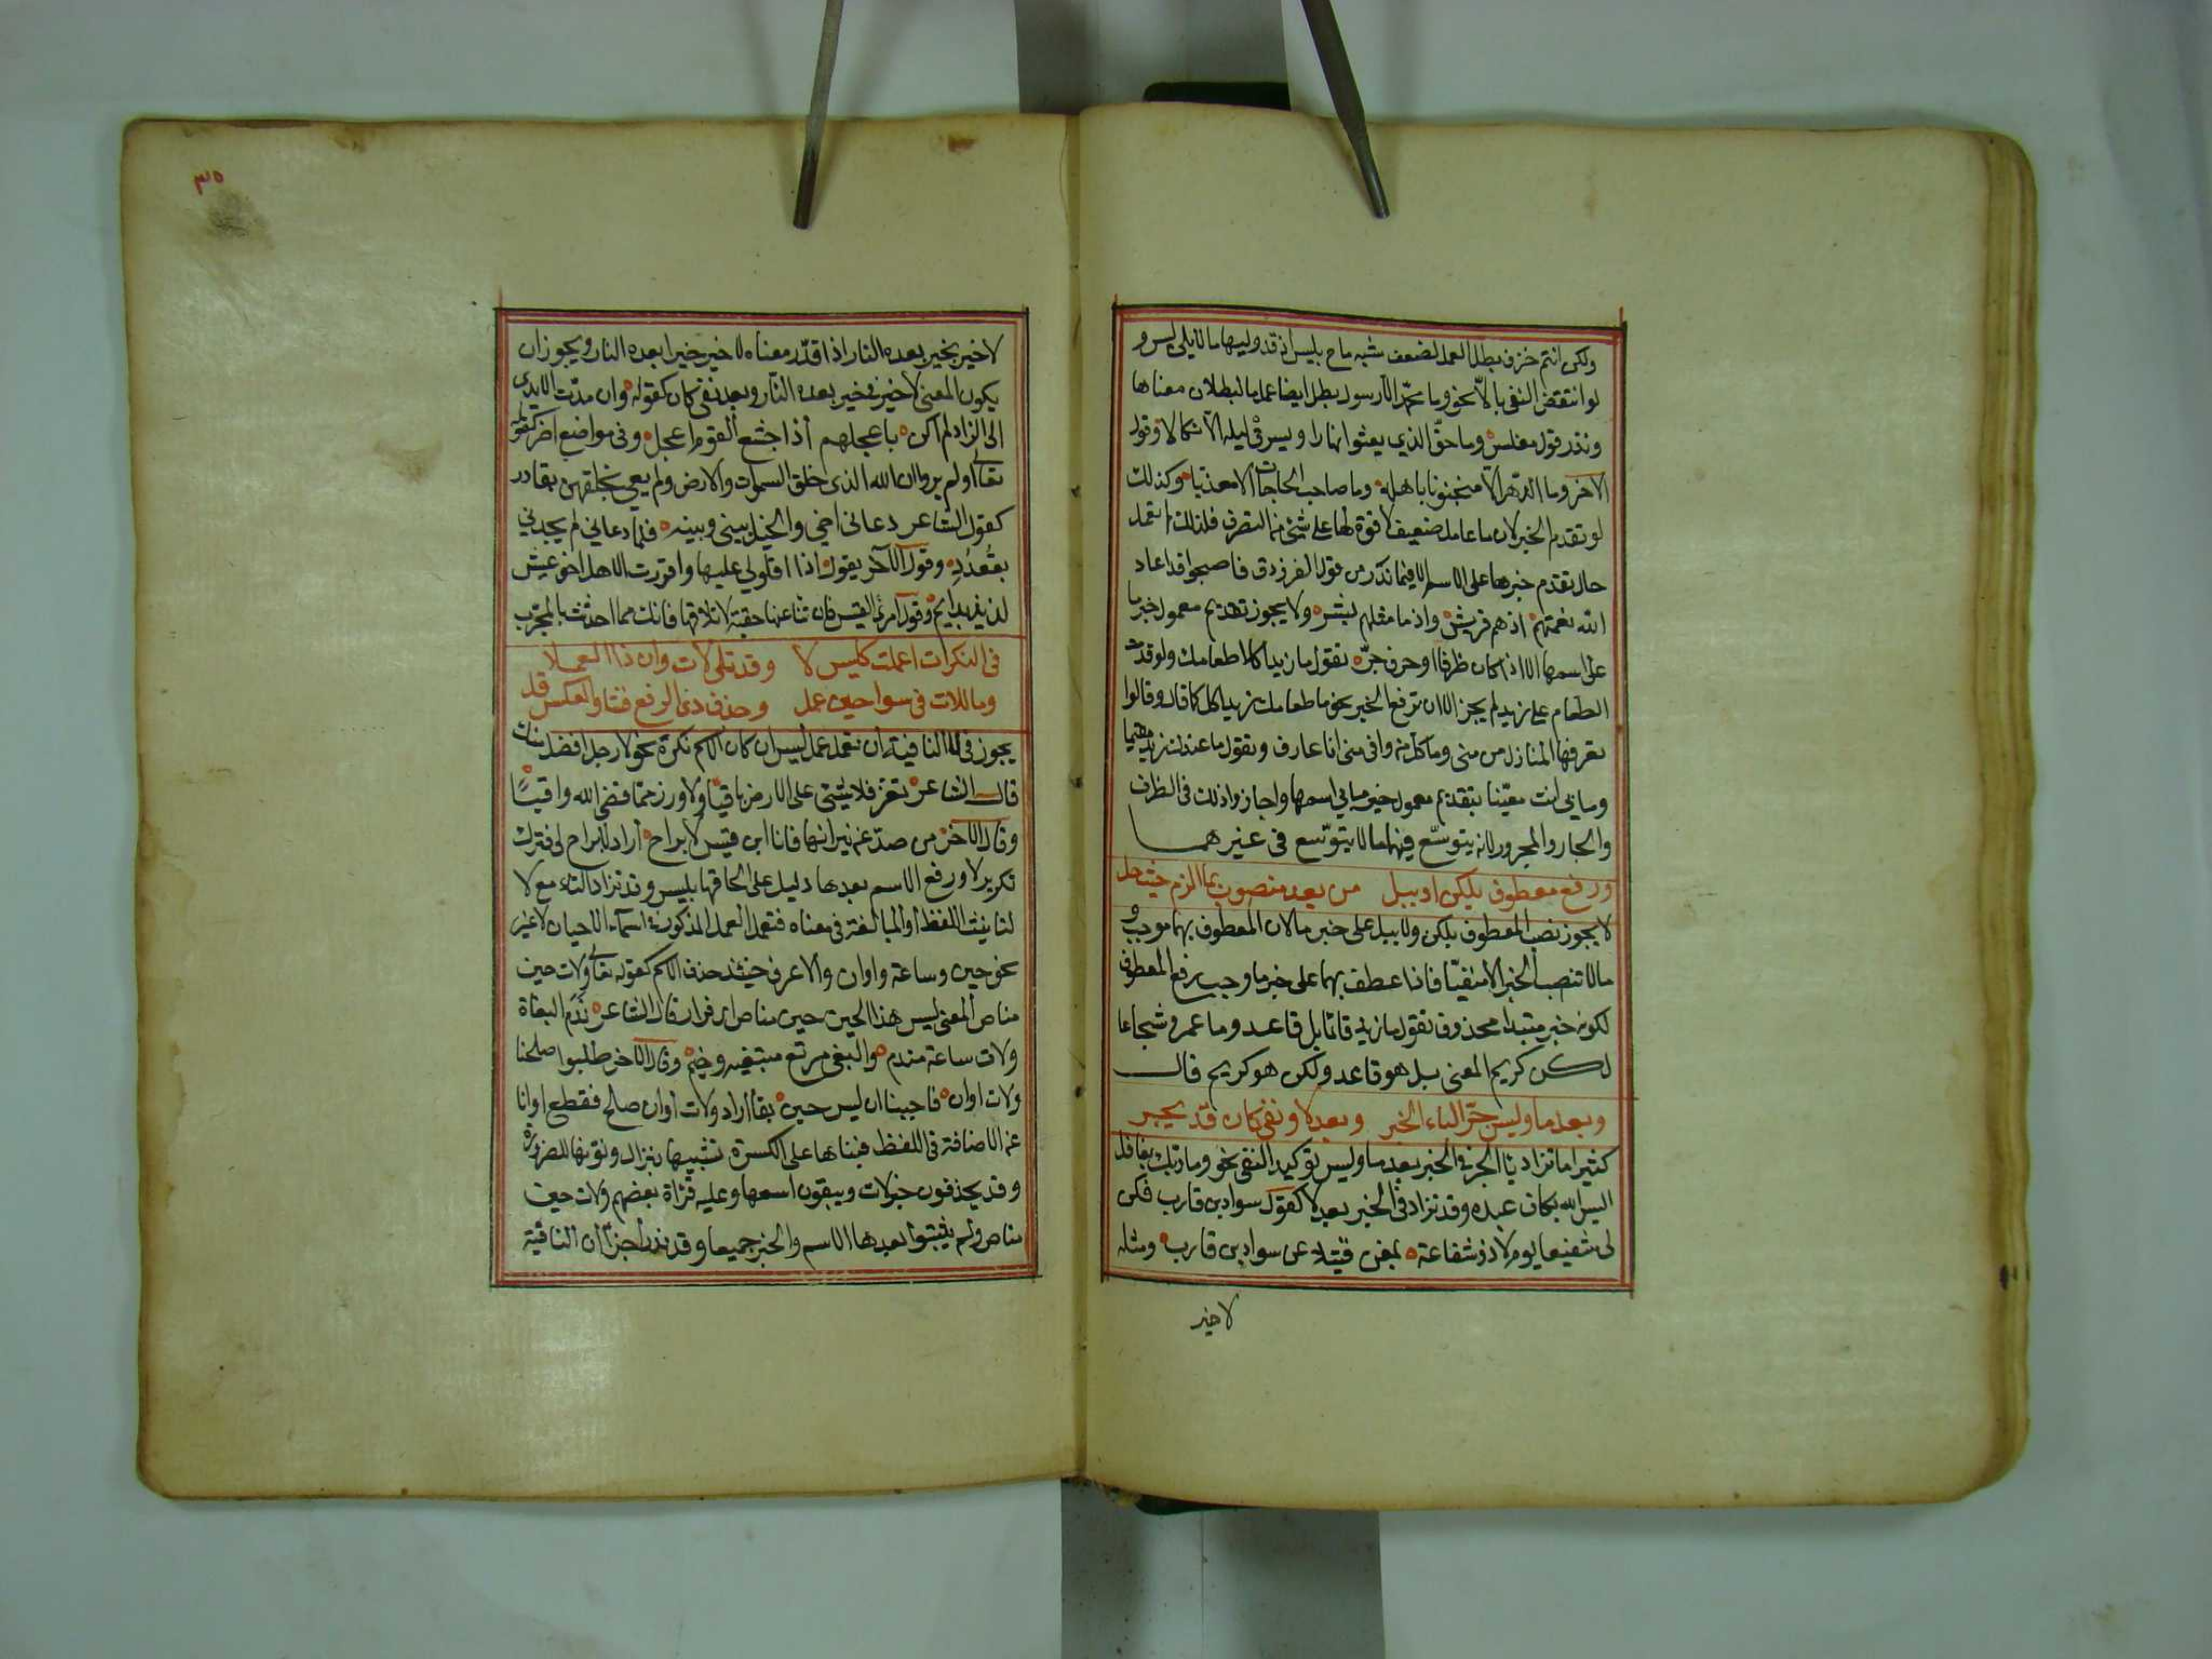 ولكن انتم خزف بطل العمل لضعف شبه ما ح بليس اذ قد وليها ما لا يلى ليس و
لو انتقض النفى بالا نحو وما محمد الا رسول بطل ايضا عمل ما لبطلان معناها
وندر قول مغلس وما حق الذي يعثوا نهارا ويسرق ليله الا نكالا وقول
الاخر وما الدهر الا منجنونا باهله وما صاحب الحاجات الا معذبا وكذلك
لو تقدم الخبر لان ما عامل ضعيف لا قوة لها على شئ من التصرف فلذلك لم تعمل
حال تقدم خبرها على الاسم الا فيما ندر من قول الفرزدق فاصبحوا قد اعاد
الله نعمتهم اذ هم قريش واذ ما مثلهم بشر ولا يجوز تقديم معمول خبر ما
على اسمها الا اذا كان ظرفا او حرف جر تقول ما زيدا كلا طعامك ولو قدمت
الطعام على زيد لم يجز الا ان ترفع الخبر نحو ما طعامك زيد اكل كما قال وقالوا
تعرفها المنازل من منى وما كل من وافى منى انا عارف وتقول ما عندك زيد مقيما
وما بى انت معنيا بتقديم معمول خبر ما على اسمها واجازوا ذلك فى الظرف
والجار والمجرور لانه يتوسع فيهما ما لا يتوسع فى غيرهما
ورفع معطوف بلكن او ببل من بعد منصوب بما الزم حيث حل
لا يجوز نصب المعطوف بلكن ولا ببل على خبر ما لان المعطوف بهما موجب و
ما لا تنصب الخبر الا منفيا فاذا عطف بهما على خبر ما وجب رفع المعطوف
لكونه خبر مبتدا محذوف تقول ما زيد قائما بل قاعد وما عمرو شجاعا
لكن كريم المعنى بل هو قاعد ولكن هو كريم قال
وبعد ما وليس جر الباء الخبر وبعد لا ونفى كان قد يجر
كثيرا ما تزاد با الجر فى الخبر بعد ما وليس توكيد النفى نحو وما ربك بغافل
اليس الله بكاف عبده وقد تزاد فى الخبر بعد لا كقول سواد بن قارب فكن
لى شفيعا يوم لا ذو شفاعة بمغن فتيلا عن سواد بن قارب ومثله
لا خير
٣٥
لا خير بخير بعده النار اذا قدر معناه لا خير خيرا بعده النار ويجوز ان
يكون المعنى لا خير فى خير بعده النار وبعد نفى كان كقوله وان مدت الايدى
الى الزاد لم اكن باعجلهم اذ اجشع القوم اعجل وفى مواضع اخر كقوله
تعالى اولم يروا ان الله الذى خلق السموات والارض ولم يعى بخلقهن بقادر
كقول الشاعر دعانى اخى والخيل بينى وبينه فلما دعانى لم يجدنى
بقعدد وقول الاخر يقول اذا اقلولى عليها واقردت الا هل اخو عيش
لذيذ بدايم وقول امرئ القيس فان تنا عنها حقبة لا تلاقها فانك مما احدثت بالمجرب
فى النكرات اعملت كليس لا وقد تلى لات وان ذا العملا
وما للات فى سوا حين عمل وحذف ذى الرفع فشا والعكس قل
يجوز فى لا النافية ان تعمل عمل ليس ان كان الاسم نكرة نحو لا رجل افضل منك
قال الشاعر تعز فلا شئ على الارض باقيا ولا وزر مما قضى الله واقيا
وقال الاخر من صد عن نيرانها فانا ابن قيس لا براح اراد لا براح لى فترك
تكرير لا ورفع الاسم بعدها دليل على الحاقها بليس وقد تزاد التاء مع لا
لتانيث اللفظ او المبالغة فى معناه فتعمل العمل المذكور فى اسماء الاحيان لا غير
نحو حين وساعة واوان والاعرف حينئذ حذف الاسم كقوله تعالى ولات حين
مناص المعنى ليس هذا الحين حين مناص اى فرار قال الشاعر ندم البغاة
ولات ساعة مندم والبغى مرتع مبتغيه وخيم وقال الاخر طلبوا صلحنا
ولات اوان فاجبنا ان ليس حين بقا اراد ولات اوان صلح فقطع اوانا
عن الاضافة فى اللفظ فبناها على الكسرة تشبيها بنزال ونونها للضرورة
وقد يحذفون خبر لات ويبقون اسمها وعليه قراة بعضهم ولات حين
مناص ولم يثبتوا بعدها الاسم والخبر جميعا وقد ندر اجرآ ان النافية